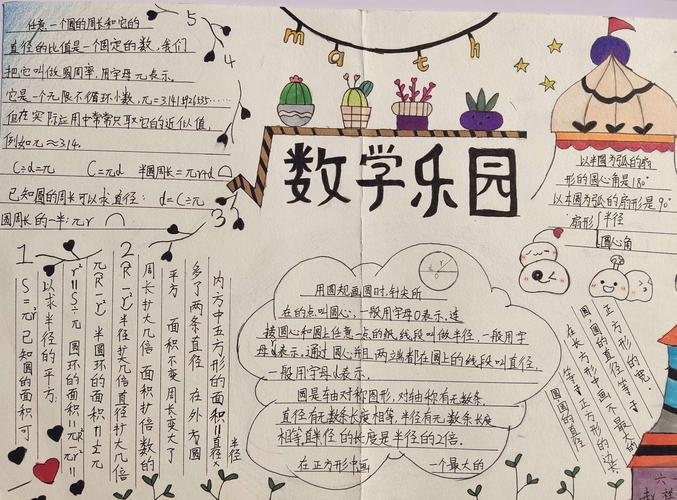 math
数学乐园
任意一个圆的周长和它的
直径的比值是一个固定的数,我们
把它叫做圆周率,用字母π表示。
它是一个无限不循环小数,π=3.1415926535……
但在实际应用中常常只取它的近似值,
例如π≈3.14.
C÷d=π C=πd 半圆周长=πr+d
已知圆的周长可以求直径: d=C÷π
圆周长的一半:πr
5
4
3
2
1
S=πr² 已知圆的面积可
以求半径的平方:
r²=S÷π 圆环的面积=πR²-πr²
半圆环的面积=
2
半径扩大几倍直径扩大几倍
周长扩大几倍 面积扩倍数的
平方 面积不变 周长变大了
多了两条直径 在外方圆
内方中正方形的面积=直径×
半径
用圆规画圆时,针尖所
在的点叫圆心,一般用字母O表示,连
接圆心和圆上任意一点的线段叫做半径,一般用字
母r表示,通过圆心并且两端都在圆上的线段叫直径,
一般用字母d表示.
圆是轴对称图形,对轴称有无数条.
直径有无数条长度相等,半径有无数条长度
相等,直径的长度是半径的2倍.
在正方形中画 一个最大的
圆,圆的直径等于
正方形的边长
在长方形中画一个最大的
圆
圆的直径
等于
宽
以半圆为弧的扇
形的圆心角是180°
以¼圆为弧的扇形是90°
扇形 半径
圆心角
六